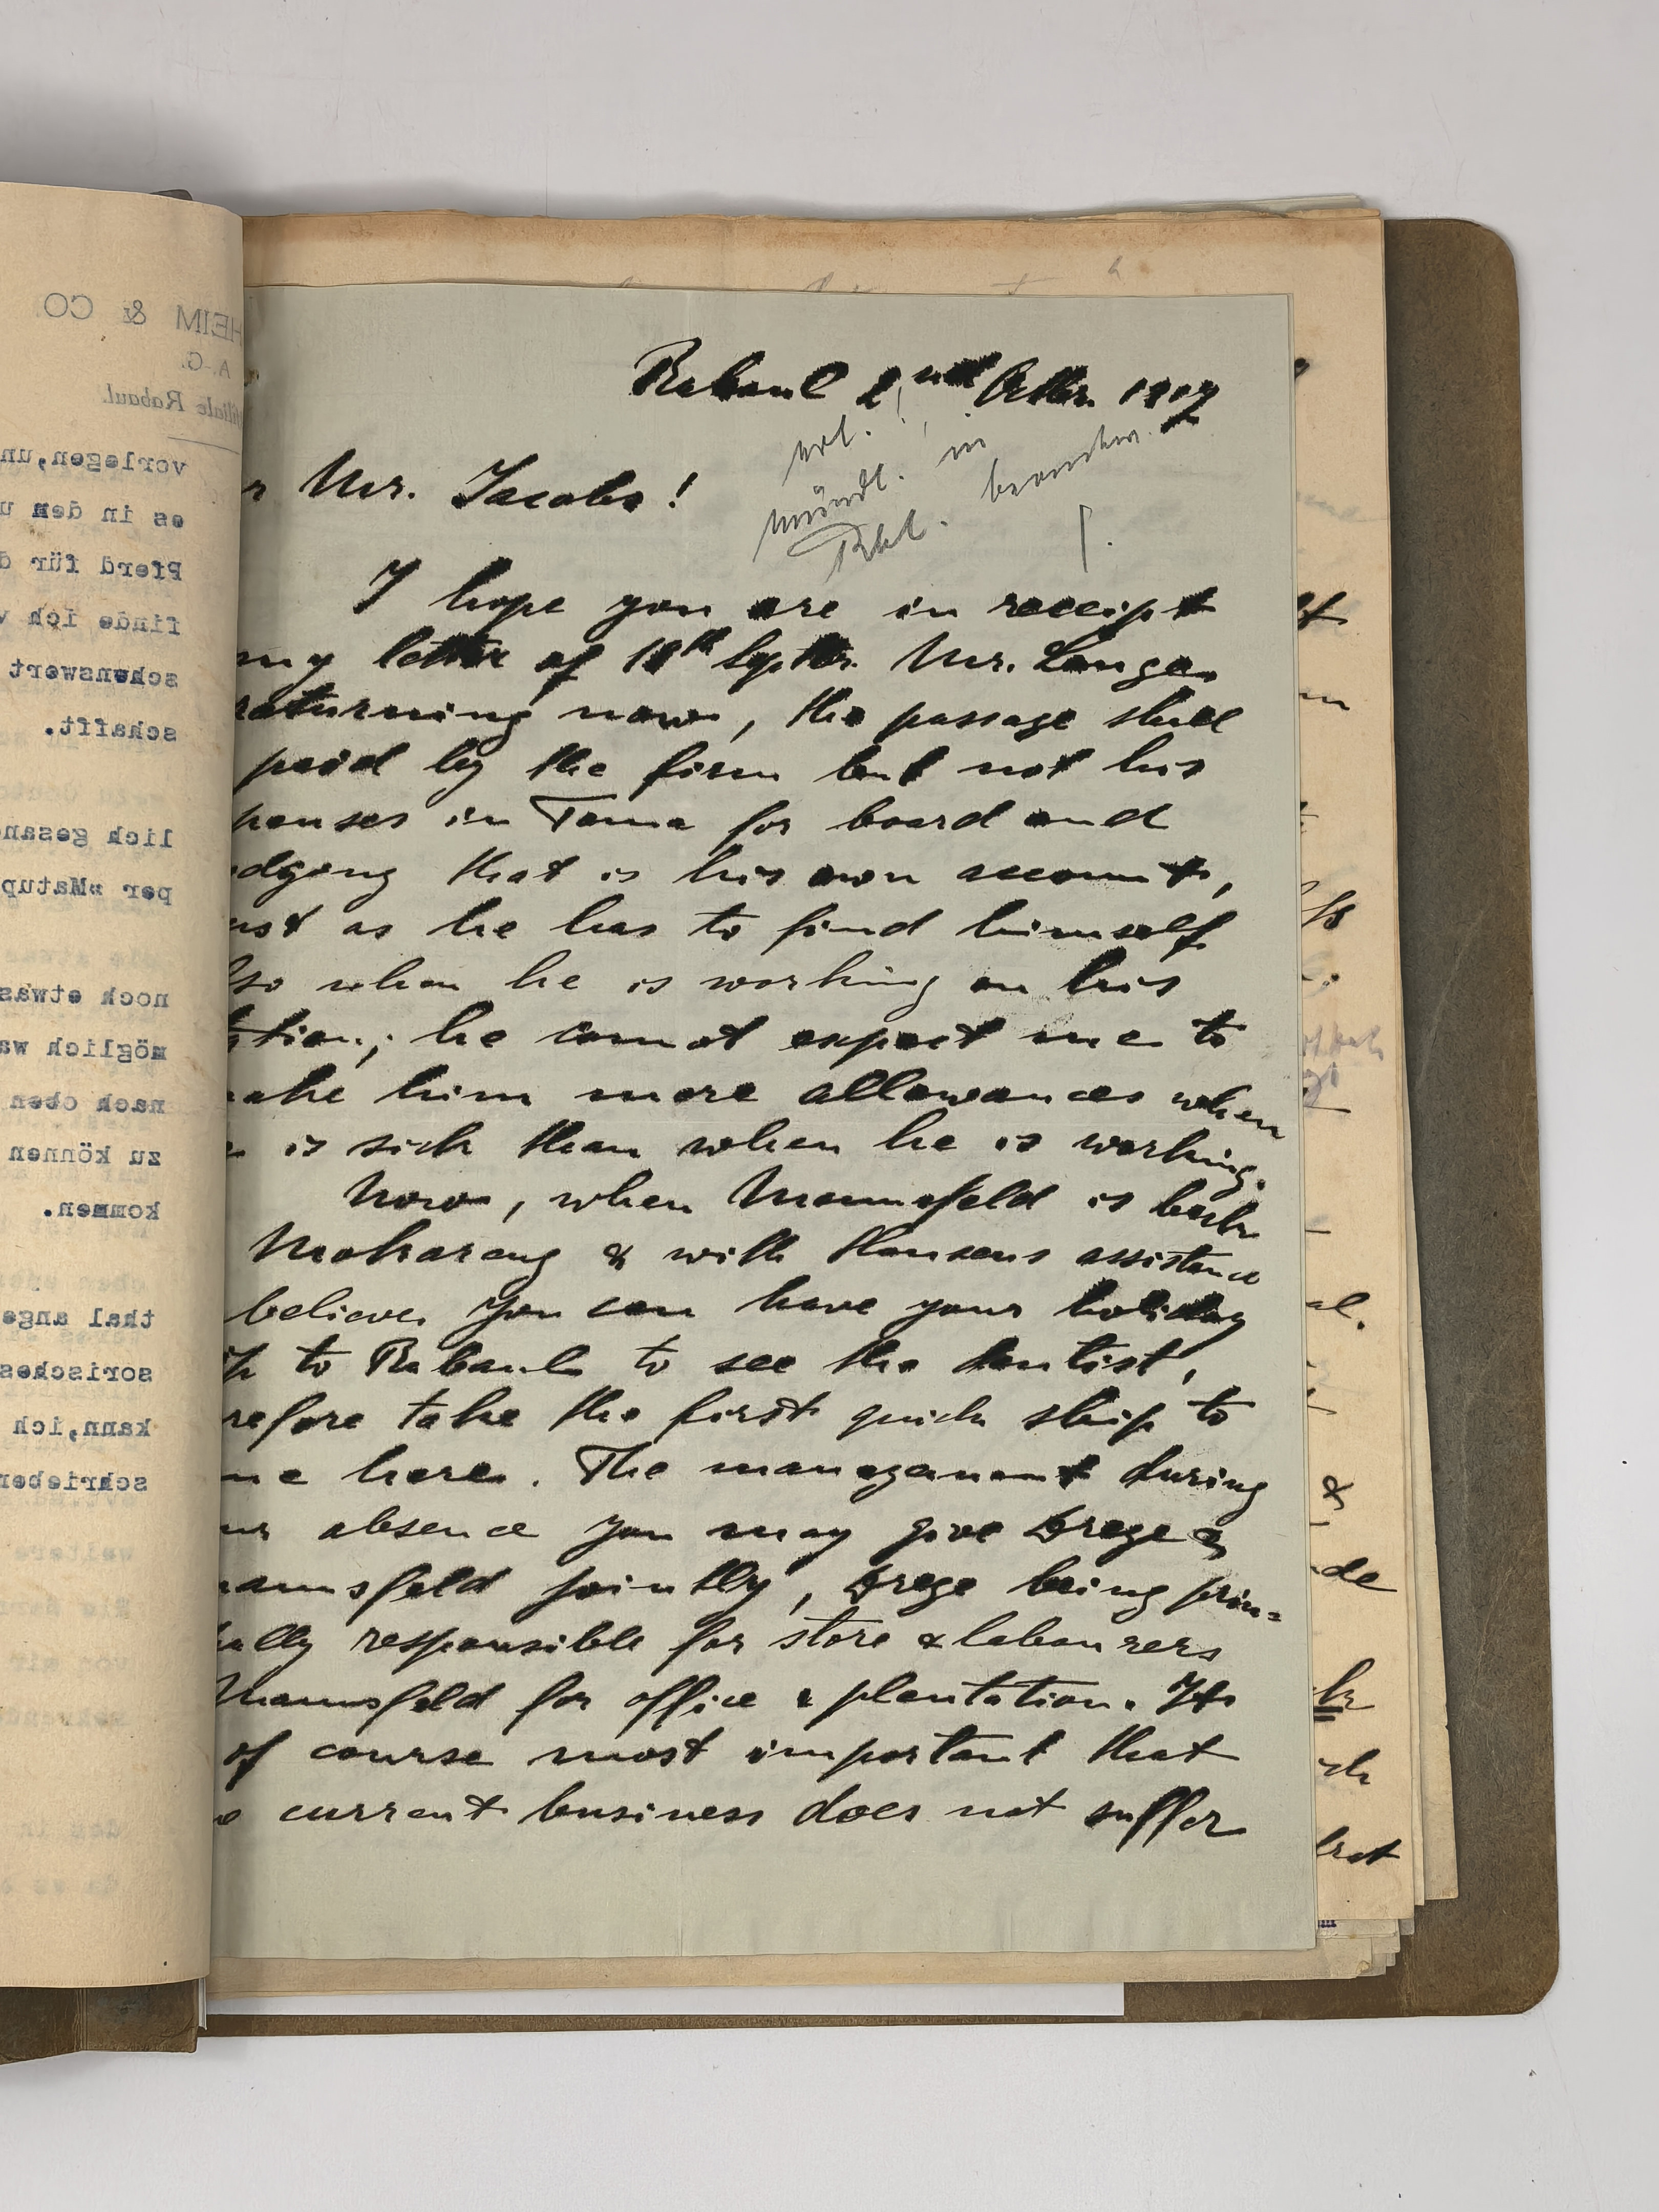 Rabaul 2nd Octbr. 1917
erl.
mündl. in
Rbl.
r Mr. Jacobs!
I hope you are in receipt
my letter of 18th Septbr. Mr. Langen
returning now, the passage shall
paid by the firm but not his
penses in Toma for board and
odgeng that is his own account,
ust as he has to find himself
lso when he is working on his
tation; he cannot expect me to
ake him more allowances when
e is sick than when he is working.
Now, when Mannsfeld is back
Mokareng & with Hansens assistance
believe you can have your holiday
ip to Rabaul to see the dentist,
refore take the first quick ship to
me here. The management during
ur absence you may give Drege &
annsfeld jointly, Drege being prin=
pally responsible for store & labourers
Mannsfeld for office & plantation. Its
of course most important that
e current business does not suffer
HEIM & CO
A.-G.
Filiale Rabaul.
vorlegen,un
es in den u
Pferd für d
finde ich v
schenswert
schafft.
lich gesan
per »Matup
noch etwas
möglich wa
nach oben
zu können
kommen.
thal ange
sorisches
kann,ich
schrieben